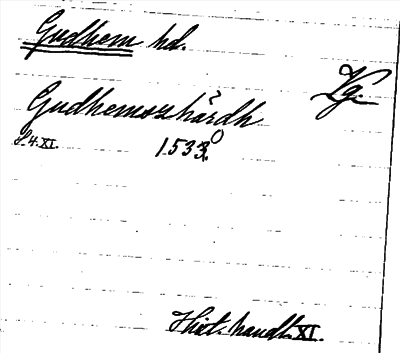 Gudhem hd.
Vg.
Gudhemszhärdh
S. 4. XI. 1533.
Hist. handl. XI.